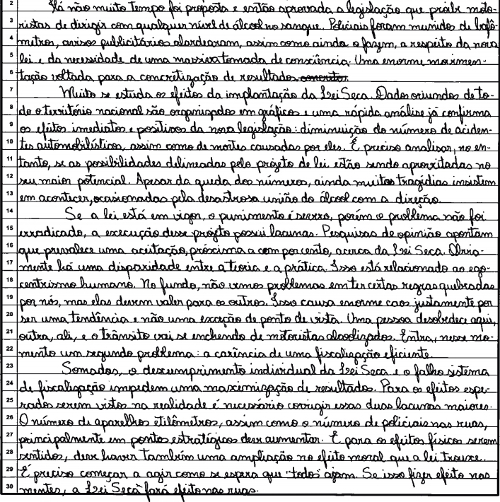 2 Há não muito tempo foi proposta e então aprovada a legislação que proíbe moto-
3 ristas de dirigir com qualquer nível de álcool no sangue. Policiais foram munidos de bafô-
4 metros, avisos publicitários alardearam, assim como ainda o fazem, a respeito da nova
5 lei e da necessidade de uma massiva tomada de consciência. Uma enorme movimen-
6 tação voltada para a concretização de resultados
7 Muito se estuda os efeitos da implantação da Lei Seca. Dados oriundos de to-
8 do o território nacional são organizados em gráficos e uma rápida análise já confirma
9 os efeitos imediatos e positivos da nova legislação: diminuição do número de aciden-
10 tes automobilísticos, assim como de mortes causadas por eles. É preciso analisar, no en-
11 tanto, se as possibilidades delineadas pelo projeto de lei estão sendo aproveitadas no
12 seu maior potencial. Apesar da queda dos números, ainda muitas tragédias insistem
13 em acontecer, ocasionadas pela desastrosa união do álcool com a direção.
14 Se a lei está em vigor, o punimento é severo, porém o problema não foi
15 erradicado, a execução desse projeto possui lacunas. Pesquisas de opinião apontam
16 que prevalece uma aceitação, próxima a cem por cento, acerca da Lei Seca. Obvia-
17 mente há uma disparidade entre a teoria e a prática. Isso está relacionado ao ego-
18 centrismo humano. No fundo, não vemos problemas em ter certas regras quebradas
19 por nós, mas elas devem valer para os outros. Isso causa enorme caos justamente por
20 ser uma tendência e não uma exceção de ponto de vista. Uma pessoa desobedece aqui,
21 outra, ali, e o trânsito vai se enchendo de motoristas alcoolizados. Entra, nesse mo-
22 mento um segundo problema: a carência de uma fiscalização eficiente.
23 Somados, o descumprimento individual da Lei Seca e o falho sistema
24 de fiscalização impedem uma maximização de resultados. Para os efeitos espe-
25 rados serem vistos na realidade é necessário corrigir essas duas lacunas maiores.
26 O número de aparelhos etilômetros, assim como o número de policiais nas ruas,
27 principalmente em pontos estratégicos deve aumentar. E para os efeitos físicos serem
28 sentidos, deve haver também uma ampliação no efeito moral que a lei trouxe.
29 É preciso começar a agir como se espera que "todos" ajam. Se isso fizer efeito nas
30 mentes, a "Lei Seca" fará efeito nas ruas.